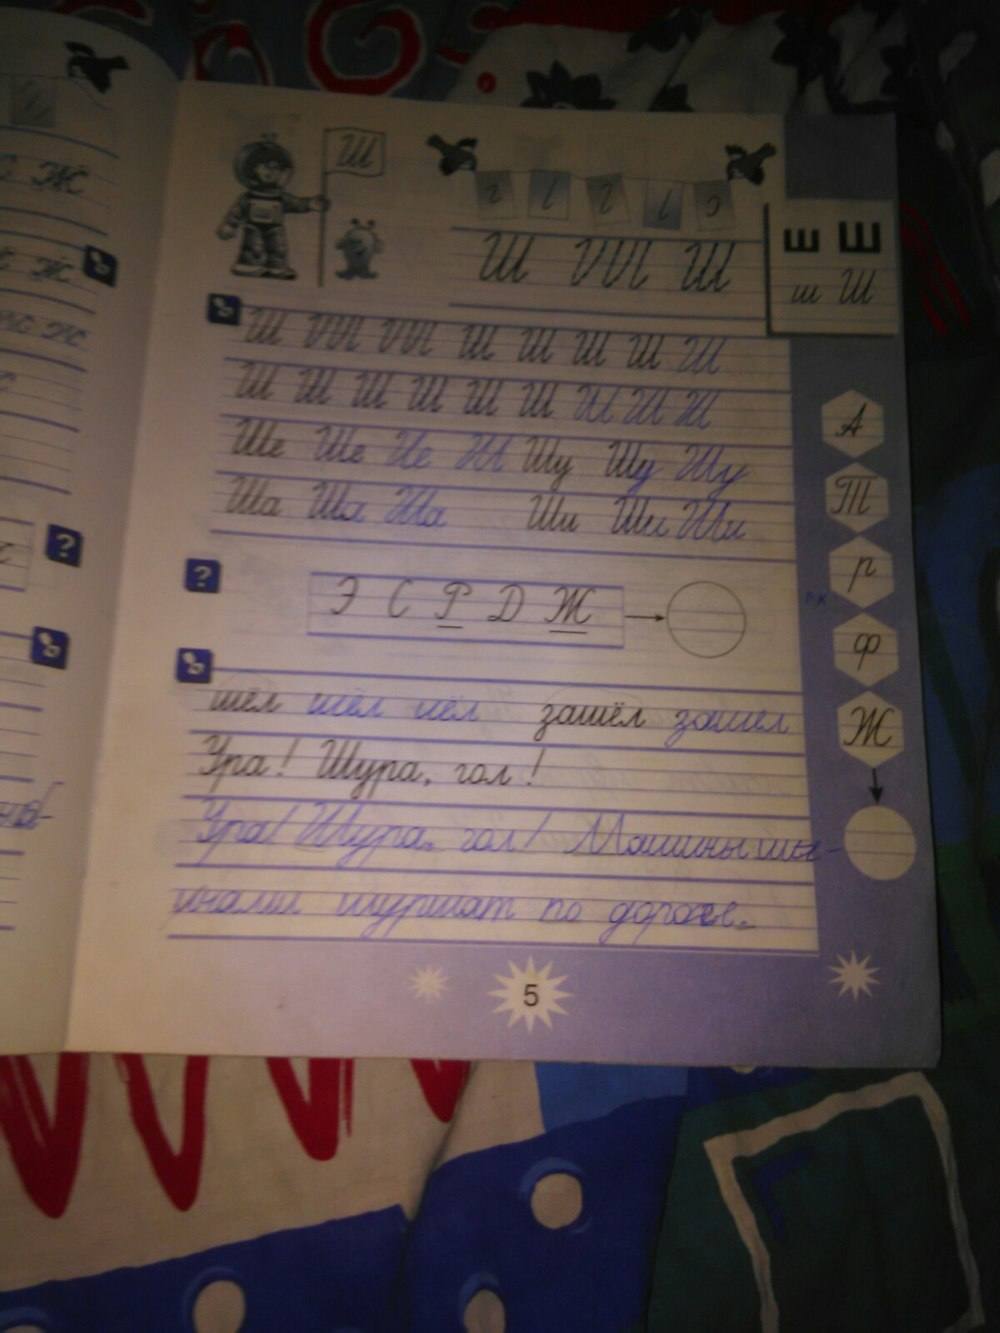 Ш
г l г l с
Ш Ш Ш
ш Ш
ш Ш
Ш Ш Ш Ш Ш Ш Ш Ш
Ш Ш Ш Ш Ш Ш Ш Ш Ш
Ше Ше Ше Шу Шу Шу
Ша Ша Ша Ши Ши Ши
? Э С Р Д Ж
шёл шёл шёл зашёл зашёл
Ура! Шура, гол!
Ура! Шура, гол! Машины ши-
инами шуршат по дороге.
А
Т
р
ф
Ж
5
Ж
Ж
?